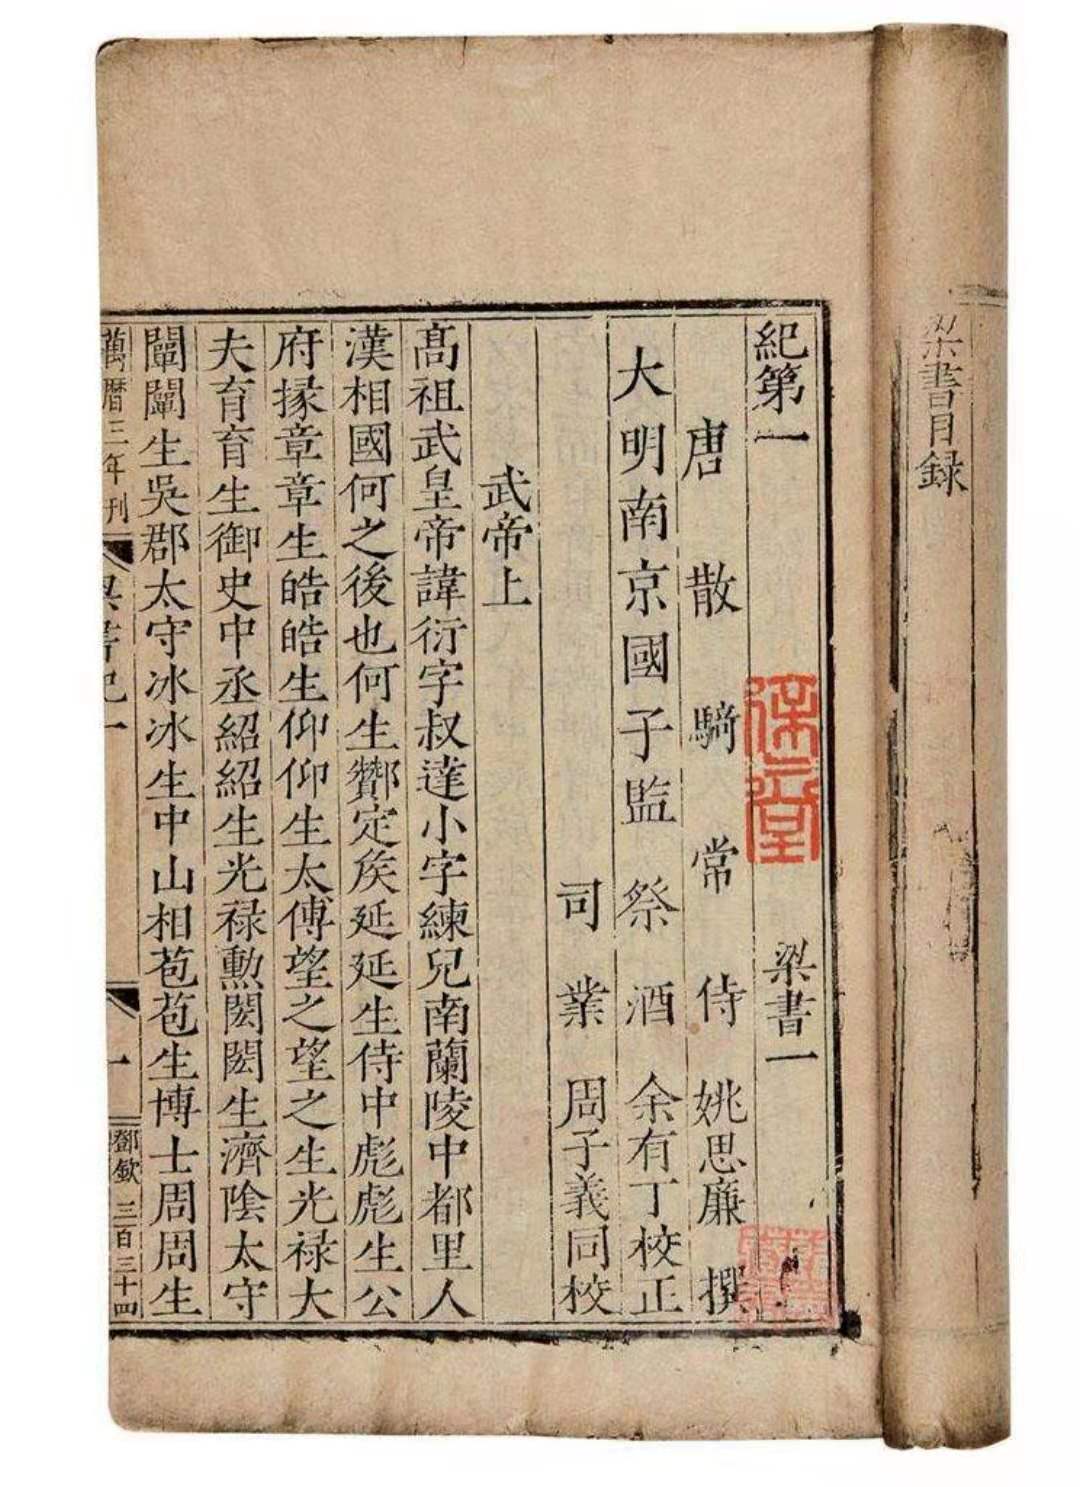 梁書目録
紀第一 梁書一
唐散騎常侍姚思廉撰
大明南京國子監祭酒余有丁校正
司業周子義同校
武帝上
髙祖武皇帝諱衍字叔達小字練兒南蘭陵中都里人
漢相國何之後也何生酇定侯延延生侍中彪彪生公
府掾章章生皓皓生仰仰生太傅望之望之生光禄大
夫育育生御史中丞紹紹生光禄勲閎閎生濟隂太守
闡闡生吳郡太守冰冰生中山相苞苞生博士周周生
萬暦三年刊 梁書紀一 一 鄧欽 三百三十四